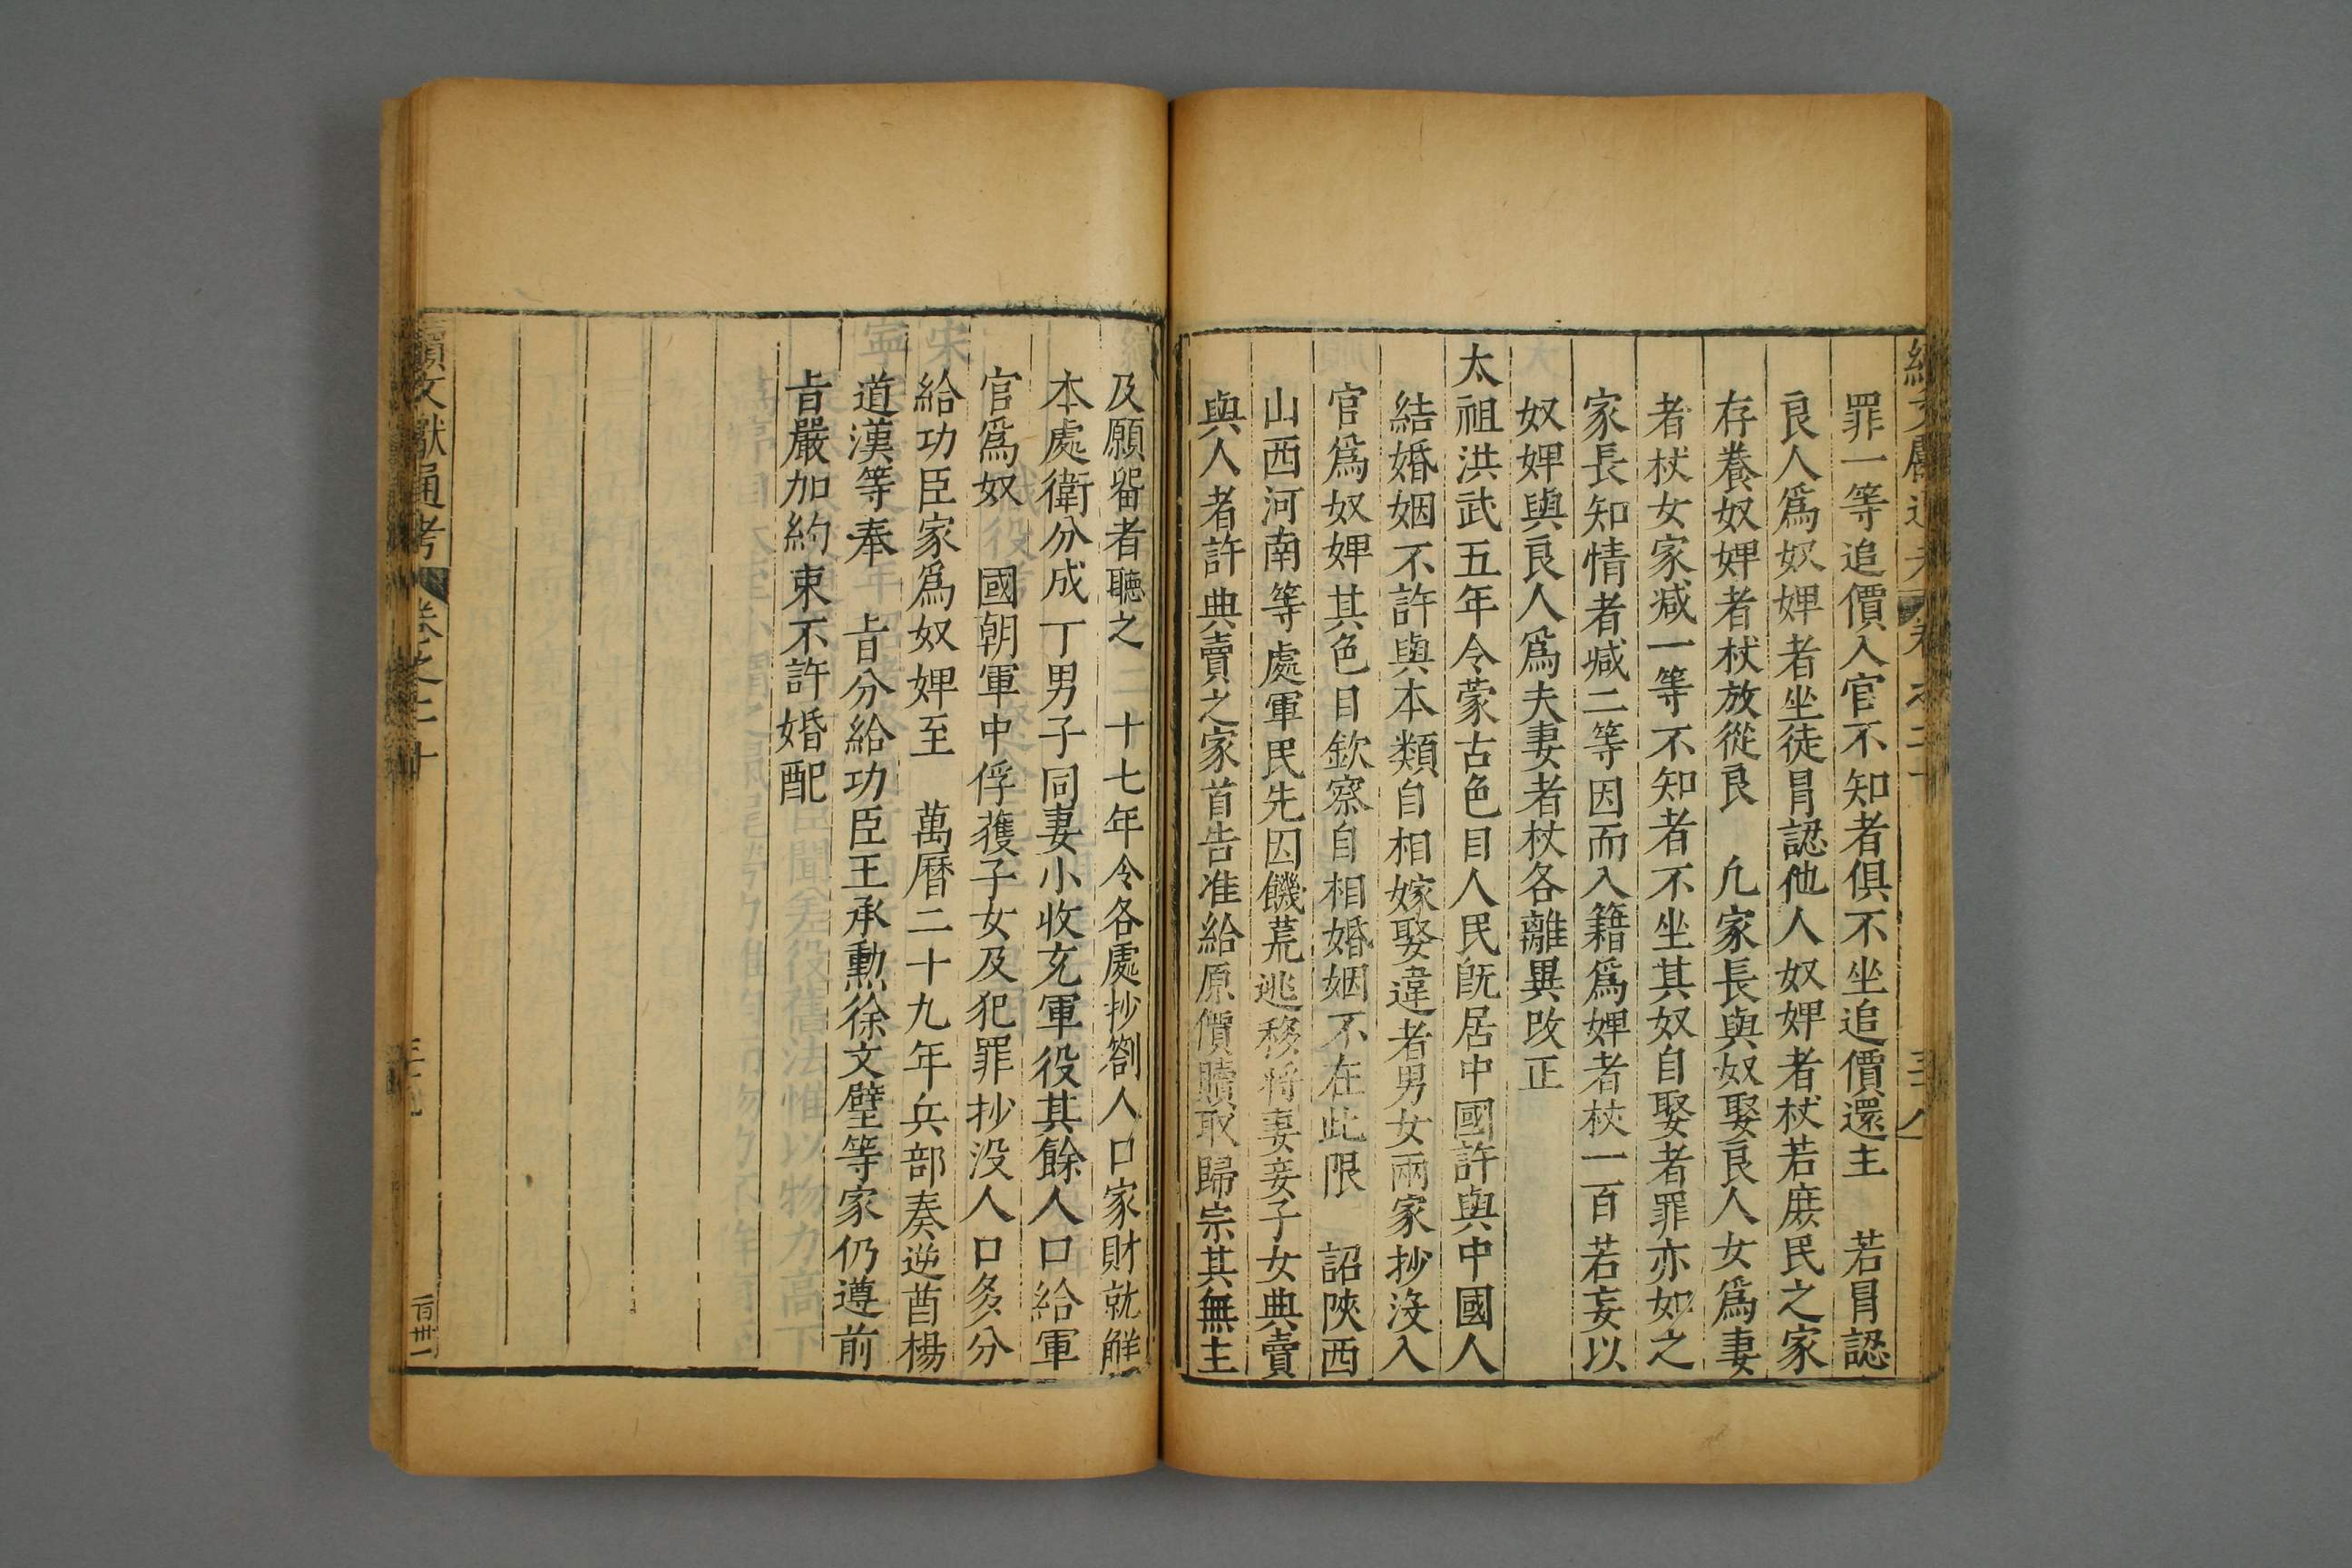 罪一等追價入官不知者俱不坐追價還主　若冐認
良人爲奴婢者坐徒冐認他人奴婢者杖若庻民之家
存養奴婢者杖放從良　凢家長與奴娶良人女爲妻
者杖女家减一等不知者不坐其奴自娶者罪亦如之
家長知情者减二等因而入籍爲婢者杖一百若妄以
奴婢與良人爲夫妻者杖各離異改正
太祖洪武五年令蒙古色目人民旣居中國許與中國人
結婚姻不許與本類自相嫁娶違者男女兩家抄没入
官爲奴婢其色目欽察自相婚姻不在此限　詔陝西
山西河南等處軍民先因饑荒逃移將妻妾子女典賣
與人者許典賣之家首告准給原價贖取歸宗其無主
及願畱者聽之　二十七年令各處抄劄人口家財就解
本處衛分成丁男子同妻小收充軍役其餘人口給軍
官爲奴　國朝軍中俘獲子女及犯罪抄没人口多分
給功臣家爲奴婢至　萬曆二十九年兵部奏逆酋楊
道漢等奉　㫖分給功臣王承勲徐文璧等家仍遵前
㫖嚴加約束不許婚配
續文獻通考　卷之二十
百卅一